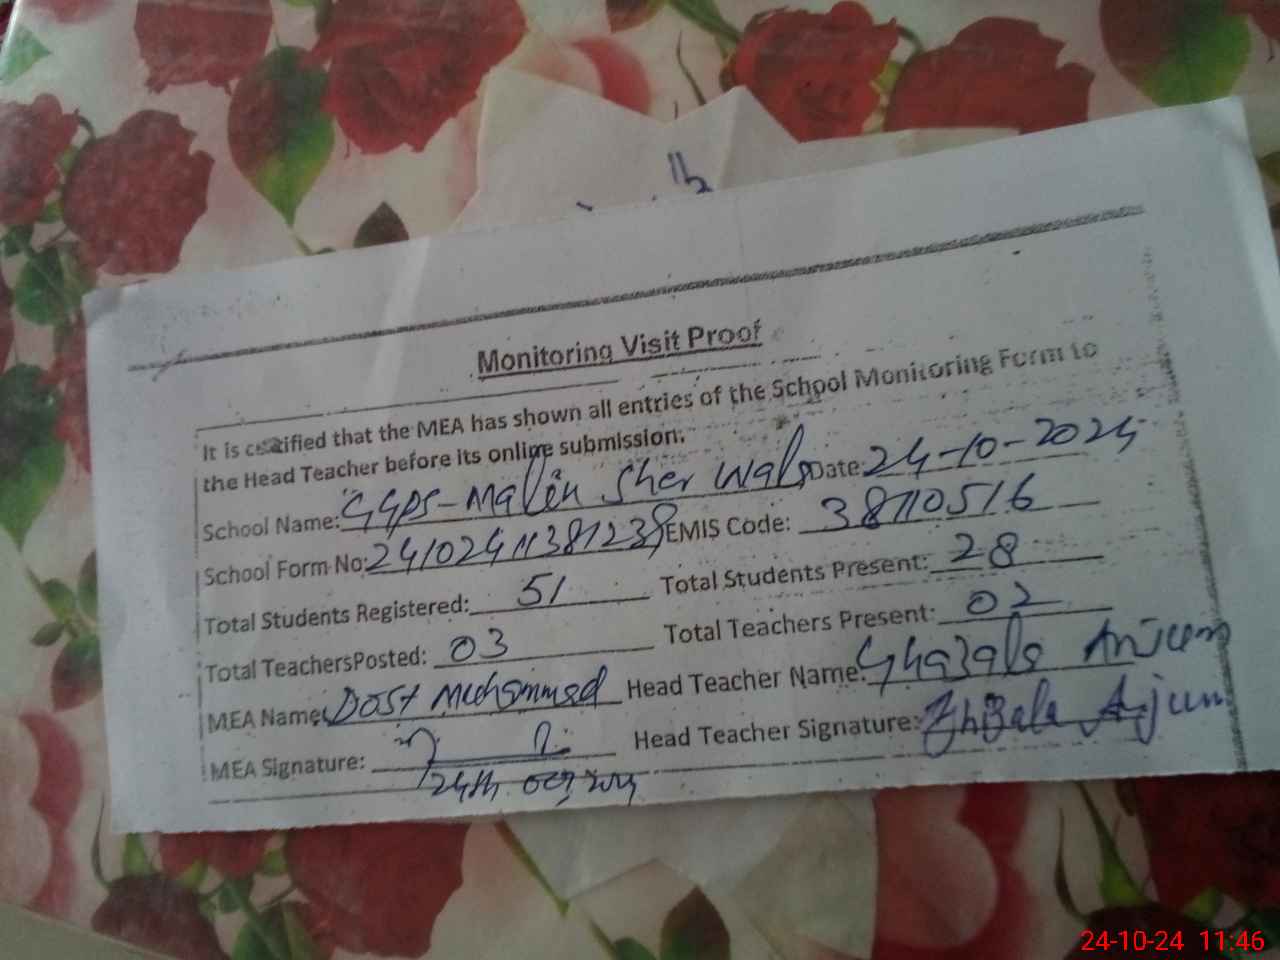 Monitoring Visit Proof
It is certified that the MEA has shown all entries of the School Monitoring Form to
the Head Teacher before its online submission.
School Name: GGPS-Malin Sher Wala Date: 24-10-2024
School Form No: 24102411381238 EMIS Code: 38110516
Total Students Registered: 51 Total Students Present: 28
Total TeachersPosted: 03 Total Teachers Present: 02
MEA Name: Dost Muhammad Head Teacher Name: Ghazala Anjum
MEA Signature: Head Teacher Signature: Ghazala Anjum
24th Oct, 2024
24-10-24 11:46